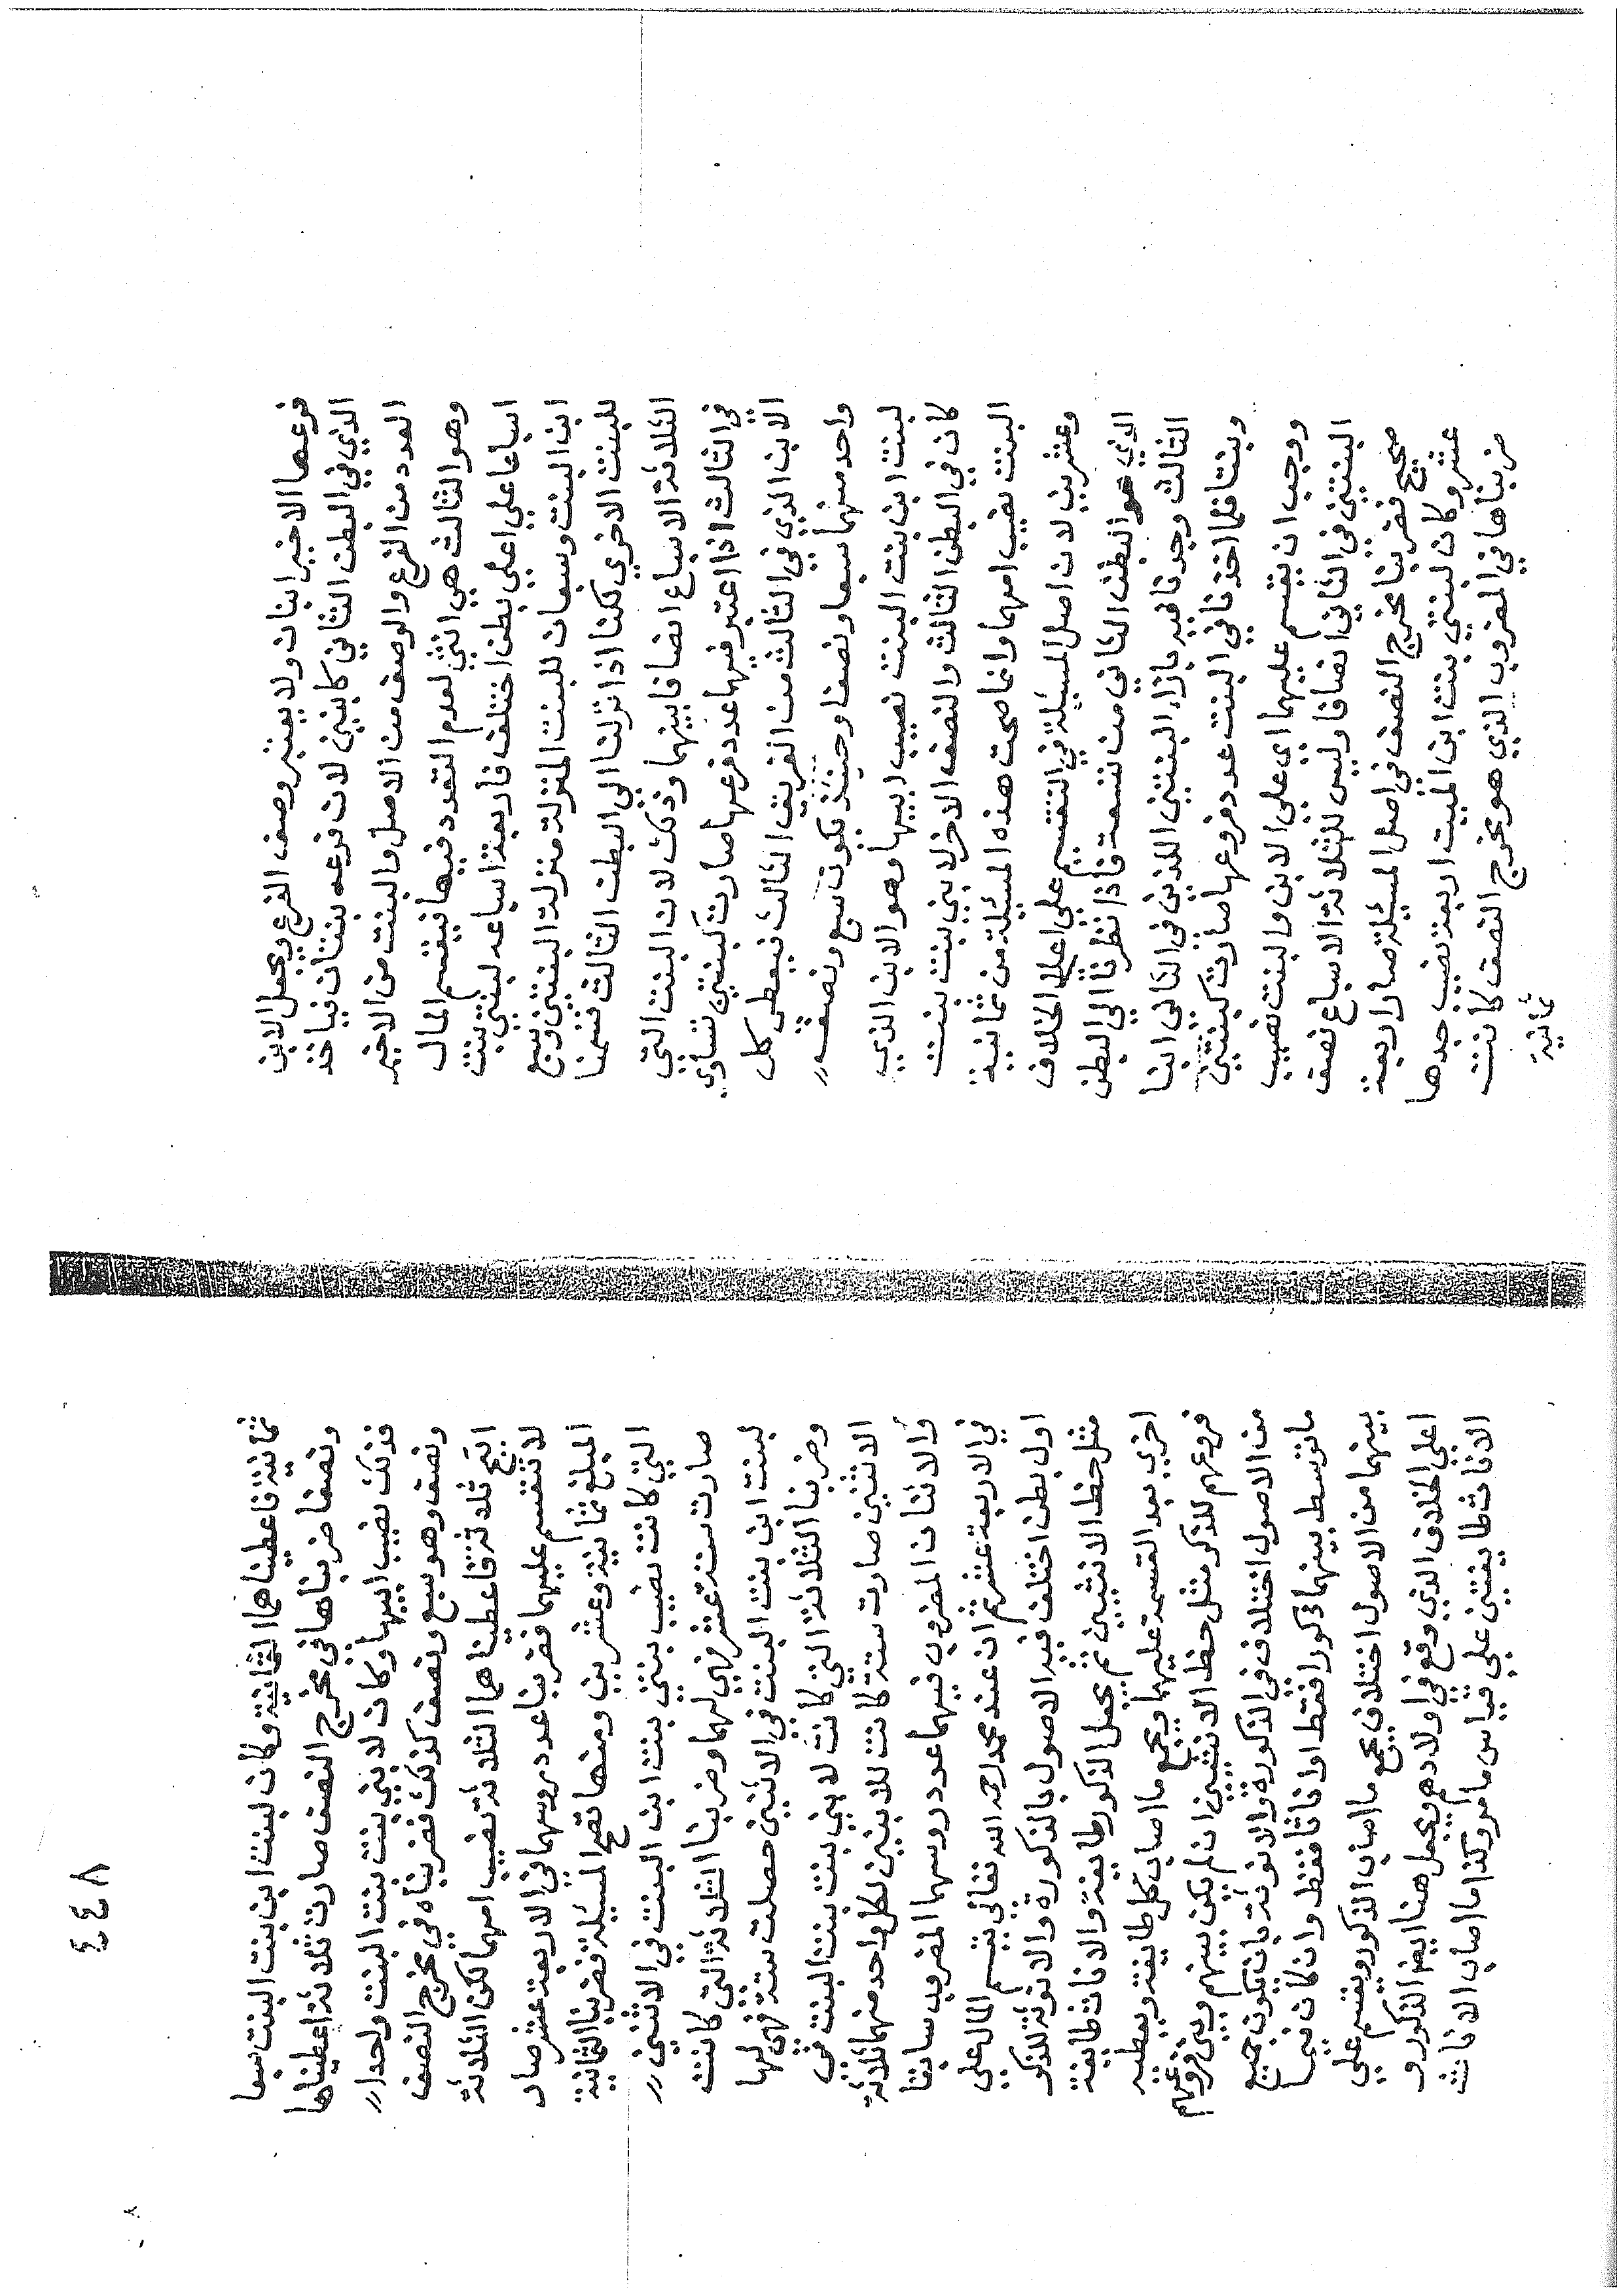 فرعها الاخير ابنان ولا يعتبر وصف الفرع ويجعل الابن
الذي في البطن الثاني كابنين لان فرعه بنتان فياخذ
العدد من الفرع والوصف من الاصل والبنت من الاخير
وهو الثالث هي انثى لعدم التعدد فيها فيقسم المال
اسباعا على اعلى بطن اختلف فاربعة اسباعه لبنتي بنت
ابن البنت وسبعان للبنت المنزلة منزلة البنتين وسبع
للبنت الاخرى لكنا اذا نزلنا الى البطن الثالث قسمنا
الثلاثة الاسباع انصافا بينهما وذلك لان البنت التي
في الثالث اذا اعتبر فيها عدد فرعها صارت كبنتين تساوي
الابن الذي في الثالث من الفريق الثالث فيعطى كل
واحد منهما سبعا ونصفا وحينئذ يكون سبع ونصف
لبنت ابن بنت البنت نصيب ابيها وهو الابن الذي
كان في البطن الثالث والنصف الاخر لابني بنت بنت
البنت نصيب امهما وانما صحت هذه المسئلة من ثمانية
وعشرين لان اصل المسئلة في التقسيم على اعلى الخلاف
الذي هو البطن الثاني من سبعة فاذا نظرنا الى البطن
الثالث وجدنا فيه بازاء البنتين اللذين في الثاني ابنا
وبنتا فلما اخذنا في البنت عدد فروعها صارت كبنتين
ووجب ان يقسم عليهما اي على الابن والبنت نصيب
البنتين في الثاني انصافا وليس للثلاثة الاسباع نصف
صحيح فضربنا مخرج النصف في اصل المسئلة صار اربعة
عشر وكان لبنتي بنت ابن البنت اربعة نصيب جدها
ضربناها في المضروب الذي هو مخرج النصف كانت
ثمانية
٤٤٨
ثمانية فاعطيناهما الثمانية وكان لبنت ابن بنت البنت سبعا
ونصفا ضربناها في مخرج النصف صارت ثلاثة اعطيناها
فذلك نصيب ابيها وكان لابني بنت بنت البنت واحد
ونصف وهو سبع ونصف كذلك فضربناه في مخرج النصف
البيع ثلاثة فاعطيناهما الثلاثة نصيب امهما لكن الثلاثة
لا تنقسم عليهما فضربنا عدد روسهما في الاربعة عشر صار
المبلغ ثمانية وعشرين ومنها تصح المسئلة فضربنا الثمانية
التي كانت نصيب بنتي بنت ابن البنت في الاثنين
صارت ستة عشر فهي لهما وضربنا الثلاثة التي كانت
لبنت ابن بنت البنت في الاثنين حصلت ستة فهي لها
وضربنا الثلاثة التي كانت لابني بنت بنت البنت في
الاثنين صارت ستة كانت للابنين لكل واحد منهما ثلاثة
والاثنان المضروب فيهما عدد روسهما المضروب سابقا
في الاربعة عشر ثم ان عند محمد رحمه الله تعالى يقسم المال على
اول بطن اختلف فيه الاصول بالذكورة والانوثة للذكر
مثل حظ الانثيين ثم يجعل الذكور طايفة والاناث طايفة
اخرى بعد القسمة عليهما ويجمع ما اصاب كل طايفة ويعطيه
فروعهم للذكر مثل حظ الانثيين ان لم يكن بينهم وبين فروعهم
من الاصول اختلاف في الذكورة والانوثة بان يكون جميع
ما توسط بينهما ذكورا فقط او اناثا فقط وان كان فيما
بينهما من الاصول اختلاف يجمع ما اصاب الذكور ويقسم على
اعلى الخلاف الذي وقع في اولادهم ويجعل هنا ايضا الذكور و
الاناث طايفتين على قياس ما مر وكذا ما اصاب الاناث